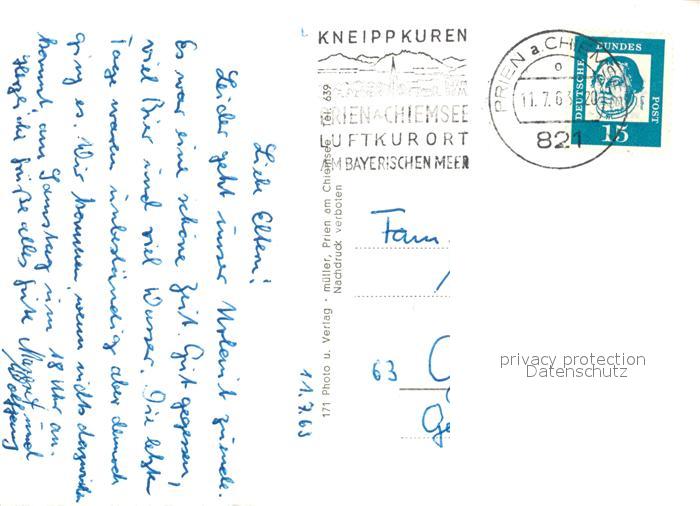 Liebe Eltern!
Leider geht unser Urlaub zuende.
Es war eine schöne Zeit. Gut gegessen,
viel Bier und viel Wasser. Die letzten
Tage waren unbeständig aber dennoch
ging es. Wir kommen, wenn nichts dazwischen
kommt, am Samstag um 18 Uhr an.
Herzliche Grüße alles Gute
und
Wolfgang
11.7.63
171 Photo u. Verlag · müller, Prien am Chiemsee Tel. 639
Nachdruck verboten
KNEIPPKUREN
PRIEN A CHIEMSEE
LUFTKURORT
AM BAYERISCHEN MEER
PRIEN a. CHIEM
11.7.63
20
821
DEUTSCHE
BUNDES
POST
15
Fam.
63
privacy protection
Datenschutz